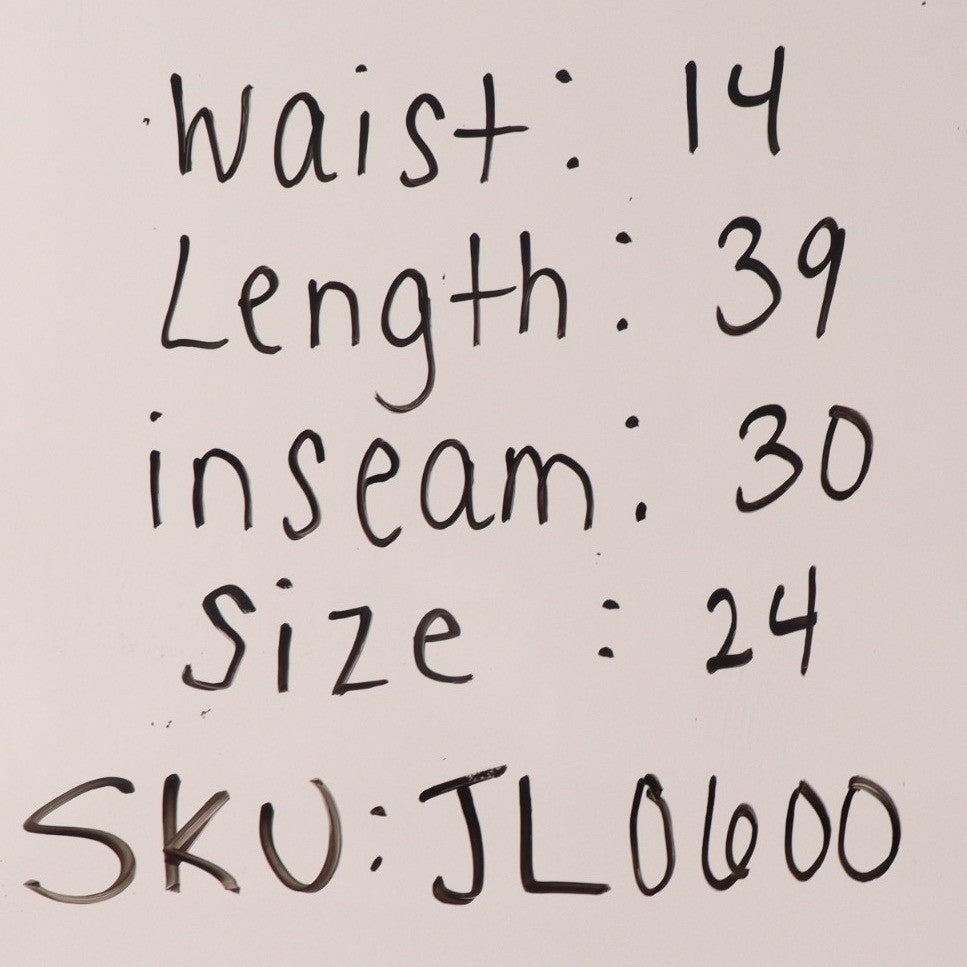 Waist: 14
Length: 39
inseam: 30
Size : 24
SKU: JL0600